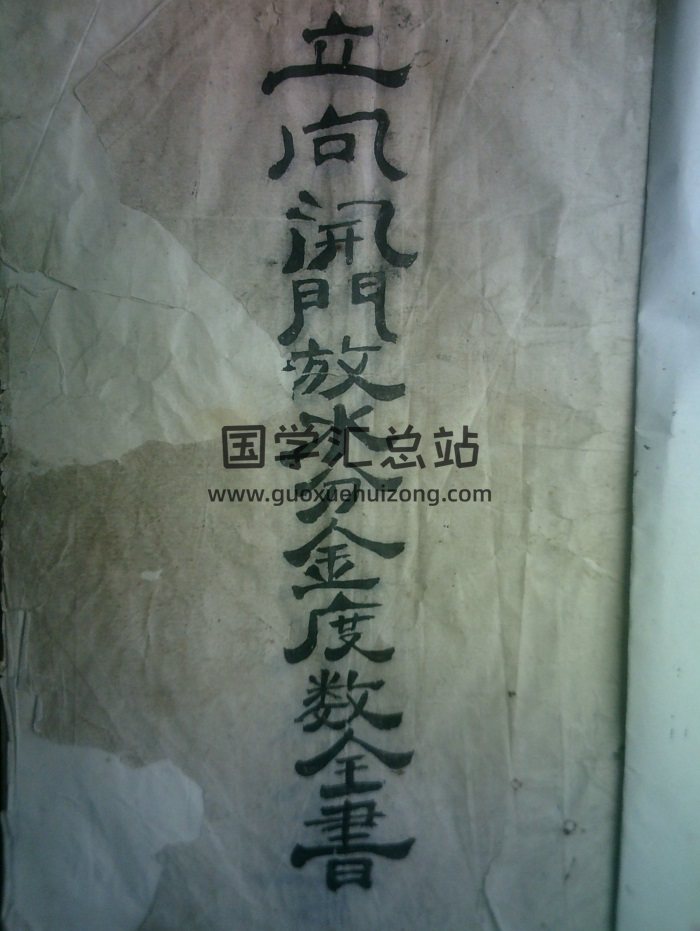 立向開門放水分金度数全書
国学汇总站
www.guoxuehuizong.com